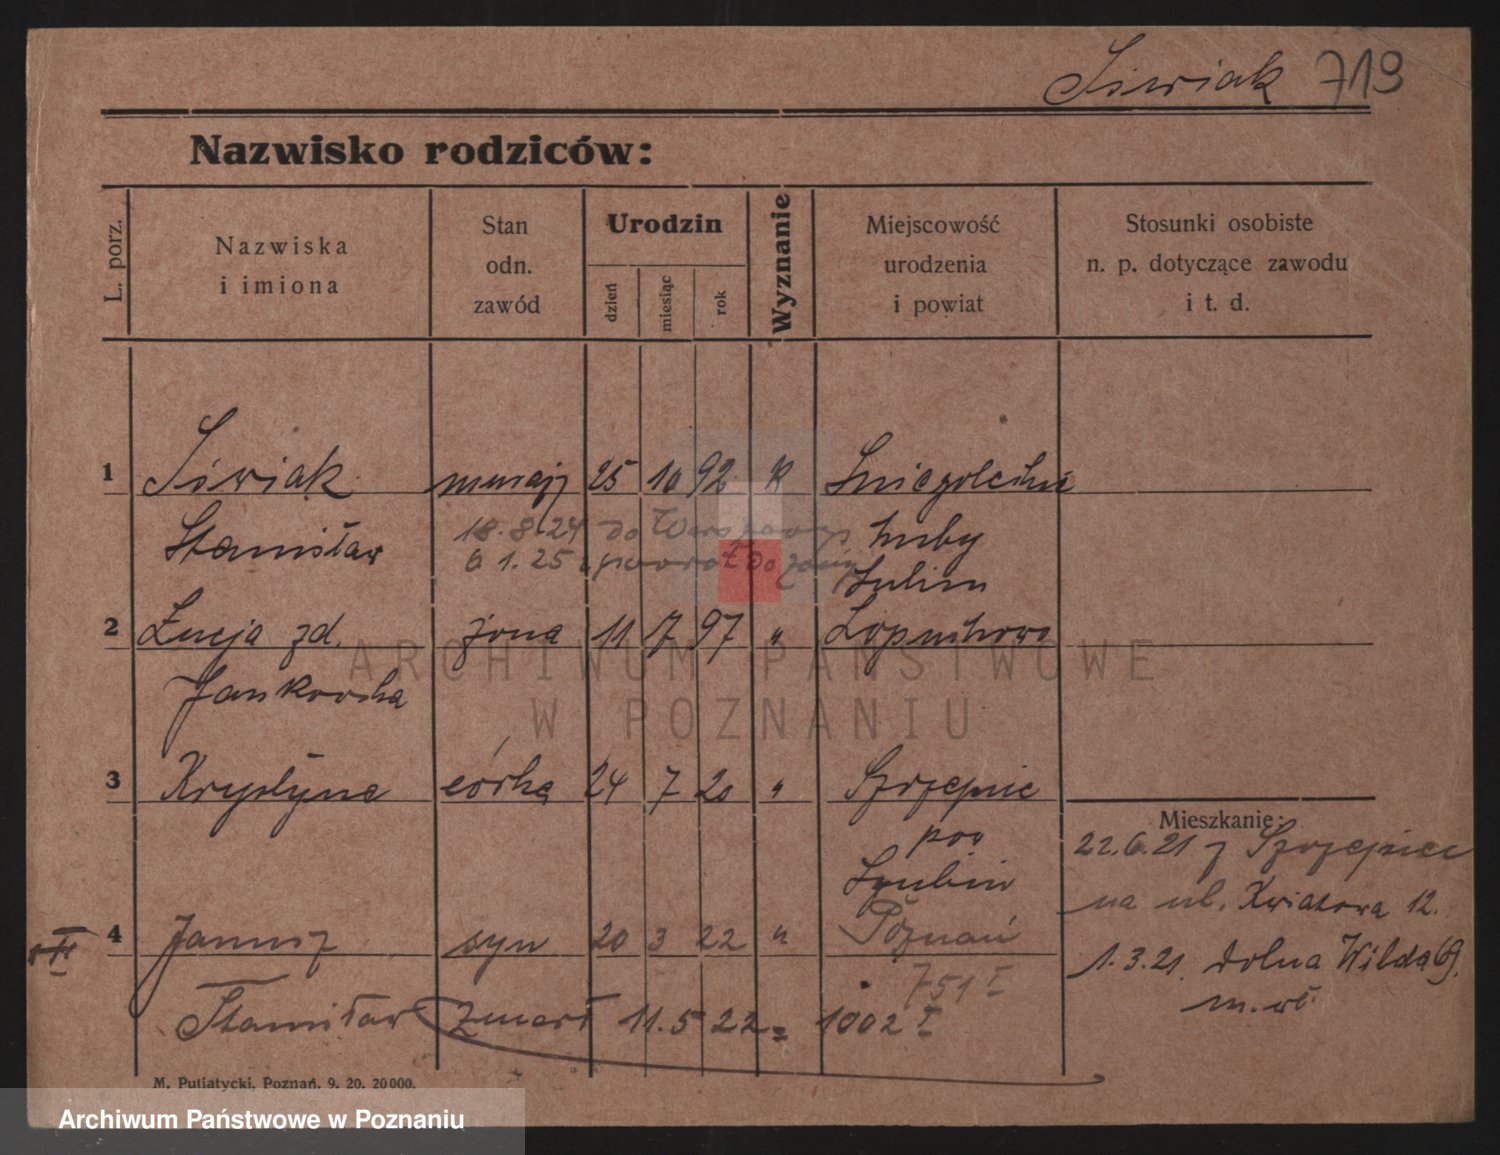 Siwiak 719
Nazwisko rodziców:
L. porz.
Nazwiska
i imiona
Stan
odn.
zawód
Urodzin
dzień
miesiąc
rok
Wyznanie
Miejscowość
urodzenia
i powiat
Stosunki osobiste
n. p. dotyczące zawodu
i t. d.
1 Siwiak 25 10 92 K
Stanisław huby
18.8.24 do Warszawy
6 1.25 do żony
2 Łucja zd. żona 11 7 97 " Łopuchowo
Jankowska
3 Krystyna córka 24 7 20 " Szrzepice
pow
Szubin
4 Janusz syn 20 3 22 " Poznań
751 I
Stanisław zmarł 11.5 22 = 1002 I
Mieszkanie:
22.6.21 z
na ul. Kwiatowa 12.
1.3.21 Dolna Wilda 69.
m. wł.
M. Putiatycki, Poznań. 9. 20. 20000.
ARCHIWUM PAŃSTWOWE
W POZNANIU
Archiwum Państwowe w Poznaniu